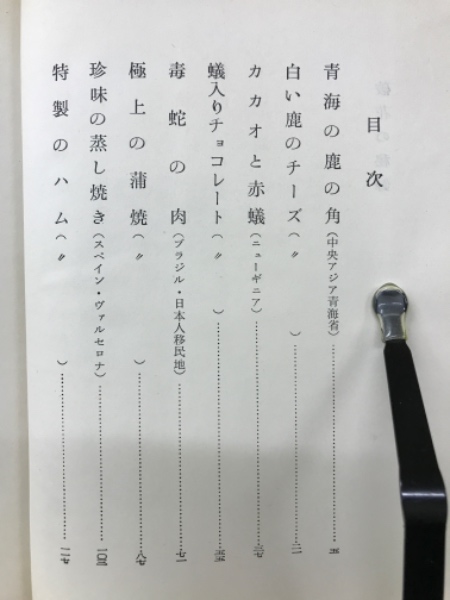 目次
青海の鹿の角(中央アジア青海省)………五
白い鹿のチーズ(〃)………二一
カカオと赤蟻(ニューギニア)………三七
蟻入りチョコレート(〃)………五五
毒蛇の肉(ブラジル・日本人移民地)………七一
極上の蒲焼(〃)………八七
珍味の蒸し焼き(スペイン・ヴァルセロナ)………一〇三
特製のハム(〃)………一一七